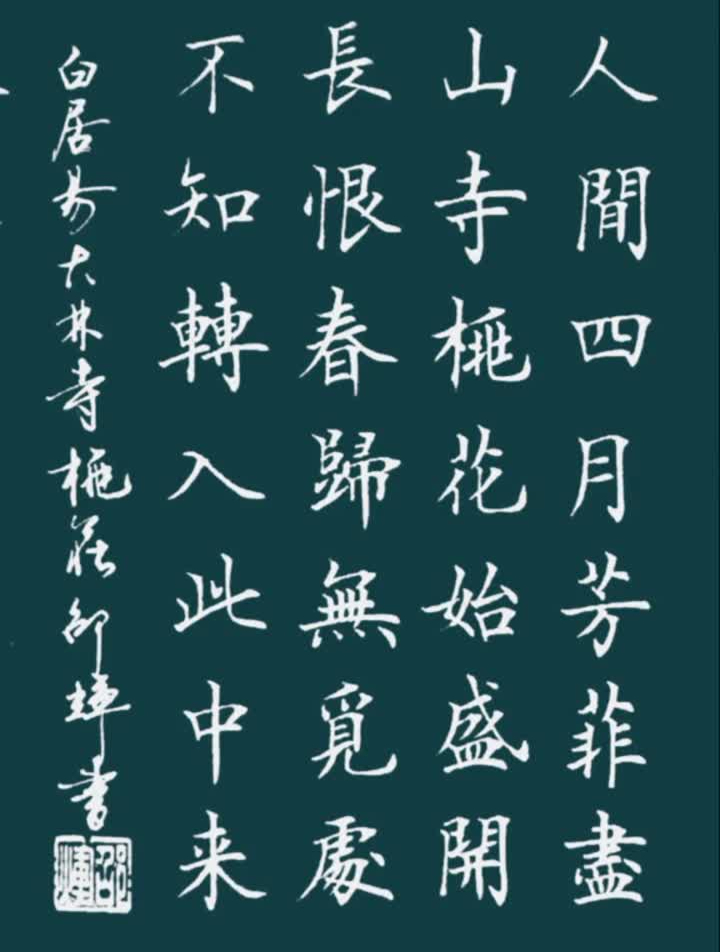 人間四月芳菲盡
山寺桃花始盛開
長恨春歸無覓處
不知轉入此中来
白居易大林寺桃花邵輝書
邵輝